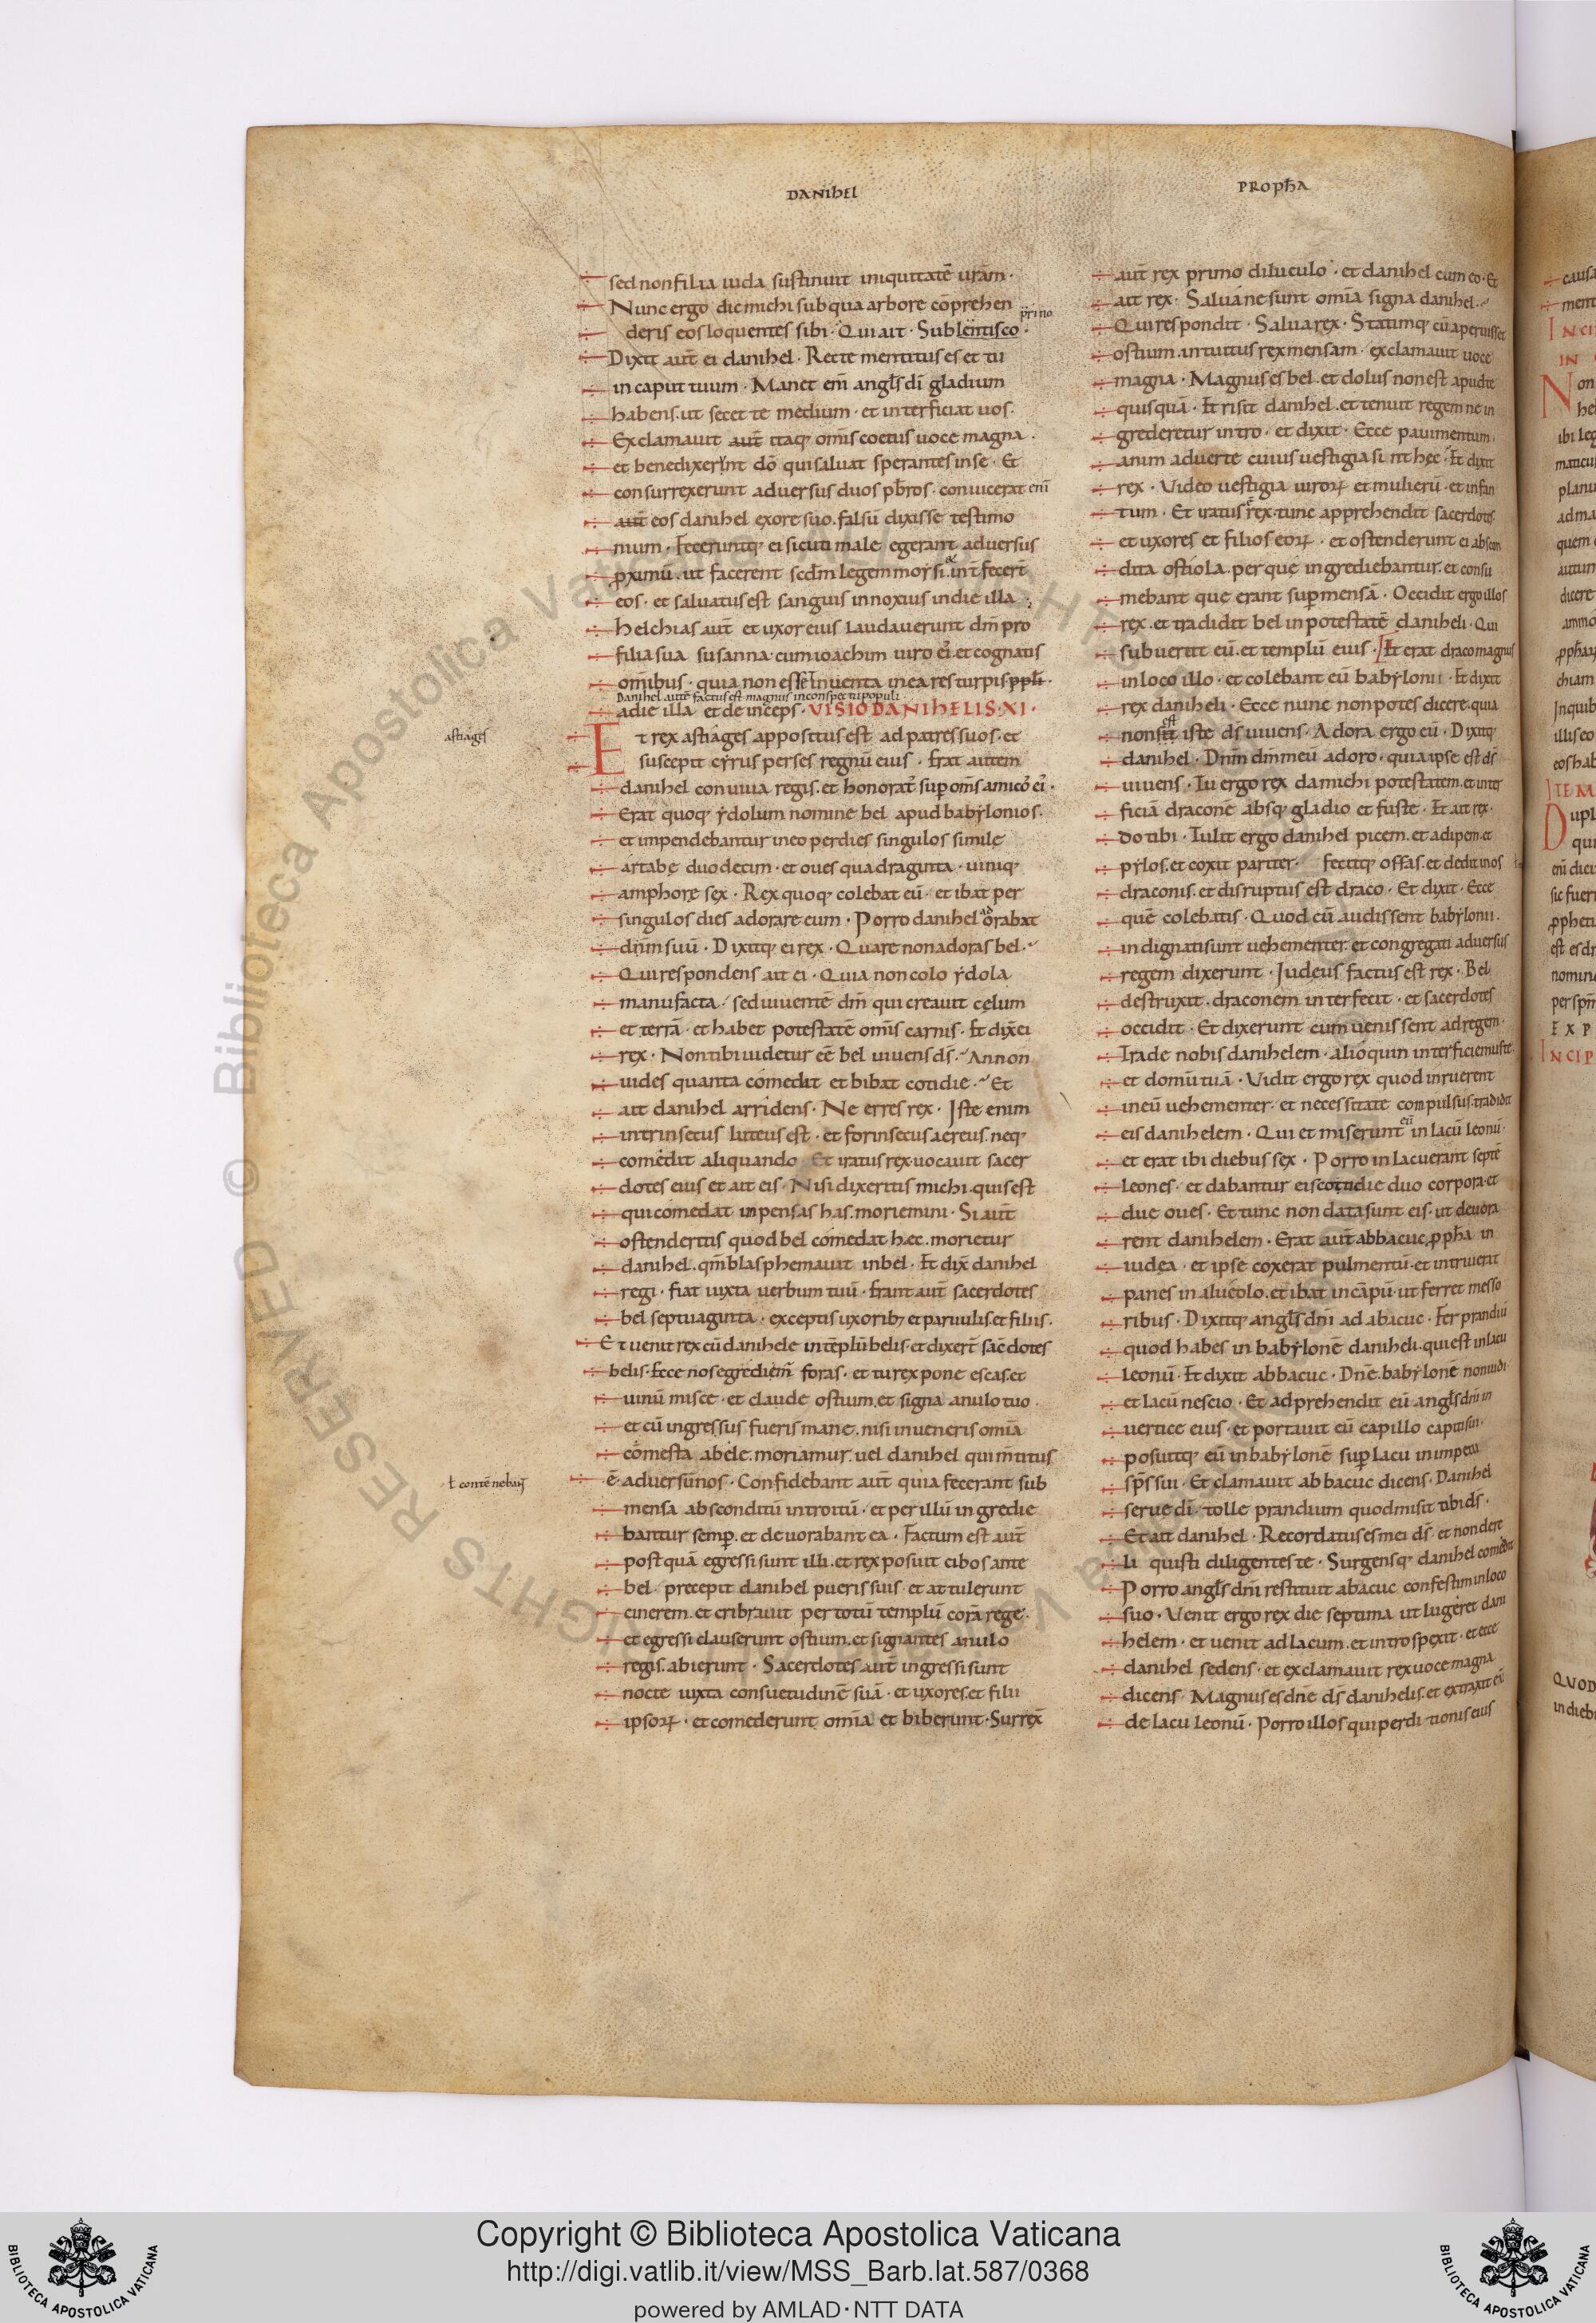 DANIHEL
PROPħA
sed non filia iuda sustinuit iniquitatē urām·
Nunc ergo dic michi sub qua arbore cōprehen
deris eos loquentes sibi· Qui ait· Sub lentisco·
prino
Dixit aut̄ ei danihel· Recte mentitus es et tu
in caput tuum· Manet em̄ angl̄s dī gladium
habens. ut secet te medium· et interficiat uos·
Exclamauit aut̄ itaq; om̄is coetus uoce magna·
et benedixerunt dō qui saluat sperantes in se· Et
consurrexerunt aduersus duos pb̄ros· conuicerat enī
aut̄ eos danihel ex ore suo. falsū dixisse testimo
nium· Feceruntq; ei sicuti male egerant aduersus
ꝓximū. ut facerent scdm̄ legem moysi. et int̄fecer̄t
eos· et saluatus est sanguis innoxius in die illa·
helchias aut̄ et uxor eius laudauerunt dm̄ pro
filia sua susanna· cum ioachim uiro ei᾽. et cognatis
om̄ibus· quia non esset inuenta in ea res turpis ppl̄i·
Danihel autē factus est magnus in conspectu populi·
a die illa et deinceps· VISIO DANIhELIS·XI·
astiages
Et rex astiages appositus est ad patres suos· et
suscepit cyrus perses regnū eius· Erat autem
danihel conuiua regis. et honorat᾽ sup om̄s amicos ei᾽·
Erat quoq; ydolum nomine bel apud babylonios·
et impendebantur in eo per dies singulos simile
artabę duodecim· et oues quadraginta· uiniq;
amphore sex· Rex quoq; colebat eū· et ibat per
singulos dies adorare eum· Porro danihel adorabat
dn̄m suū· Dixitq; ei rex· Quare non adoras bel·
Qui respondens ait ei· Quia non colo ydola
manufacta· sed uiuentē dm̄ qui creauit cęlum
et terrā· et habet potestatē om̄is carnis· Et dix̄ ei
rex· Non tibi uidetur eē bel uiuens ds̄· Annon
uides quanta comedit et bibat cotidie· Et
ait danihel arridens· Ne erres rex· Iste enim
intrinsecus luteus est· et forinsecus aereus. neq;
comedit aliquando· Et iratus rex uocauit sacer
dotes eius et ait eis· Nisi dixeritis michi. quis est
qui comedat inpensas has. moriemini· Si aut̄
ostenderitis quod bel comedat hęc. morietur
danihel. qm̄ blasphemauit in bel· Et dix̄ danihel
regi· fiat iuxta uerbum tuū· Erant aut̄ sacerdotes
bel septuaginta· exceptis uxorib; et paruulis. et filiis·
Et uenit rex cū danihele in tēplū belis· et dixer̄t sac̄dotes
belis· Ecce nos egrediem̄ foras· et tu rex pone escas. et
uinū misce· et claude ostium. et signa anulo tuo·
et cū ingressus fueris mane. nisi inueneris om̄ia
comesta a bele. moriamur. uel danihel qui m̄titus
ē aduersū nos· Confidebant aut̄ quia fecerant sub
ł contēnebant
mensa absconditū introitū· et per illū ingredie
bantur semp. et deuorabant ea· Factum est aut̄
postquā egressi sunt illi. et rex posuit cibos ante
bel· precepit danihel pueris suis· et attulerunt
cinerem. et cribrauit per totū templū corā rege·
et egressi clauserunt ostium. et signantes anulo
regis. abierunt· Sacerdotes aut̄ ingressi sunt
nocte iuxta consuetudinē suā· et uxores. et filii
ipsorꝝ· et comederunt om̄ia et biberunt· Surrex̄
aut̄ rex primo diluculo· et danihel cum eo· Et
ait rex· Saluáne sunt om̄ia signa danihel·
Qui respondit· Salua rex· Statimq; cū aperuisset
ostium. intuitus rex mensam· exclamauit uoce
magna· Magnus es bel. et dolus non est apud te
quisquā· Et risit danihel. et tenuit regem ne in
grederetur intro· et dixit· Ecce pauimentum·
anim aduerte cuius uestigia sint hęc· Et dixit
rex· Video uestigia uirorꝝ et mulierū· et infan
tum· Et iratus ē rex· tunc apprehendit sacerdotes
et uxores et filios eorꝝ· et ostenderunt ei abscon
dita ostiola. per que ingrediebantur. et consu
mebant que erant sup mensā· Occidit ergo illos
rex. et tradidit bel in potestatē daniheli· Qui
subuertit eū. et templū eius· Et erat draco magnus
in loco illo· et colebant eū babylonii· Et dixit
rex daniheli· Ecce nunc non potes dicere. quia
non sit iste ds̄ uiuens· Adora ergo eū· Dixitq;
est
danihel· Dn̄m dm̄ meū adoro· quia ipse est ds̄
uiuens· Tu ergo rex da michi potestatem. et inter
ficiā draconē absq; gladio et fuste· Et ait rex·
Do tibi· Tulit ergo danihel picem. et adipem. et
pylos. et coxit pariter· fecitq; offas. et dedit in os
draconis. et disruptus est draco· Et dixit· Ecce
quē colebatis· Quod cū audissent babylonii·
indignati sunt uehementer. et congregati aduersus
regem dixerunt· Iudeus factus est rex· Bel
destruxit. draconem interfecit· et sacerdotes
occidit· Et dixerunt cum uenissent ad regem·
Trade nobis danihelem· alioquin interficiemus te·
et domū tuā· Vidit ergo rex quod inruerent
in eū uehementer· et necessitate compulsus. tradidit
eis danihelem· Qui et miserunt eū in lacū leonū·
et erat ibi diebus sex· Porro in lacu erant septē
leones· et dabantur eis cotidie duo corpora. et
due oues· Et tunc non data sunt eis. ut deuora
rent danihelem· Erat aut̄ abbacuc ꝓpħa in
iudęa· et ipse coxerat pulmentū. et intriuerat
panes in alueolo. et ibat in cāpū· ut ferret messo
ribus· Dixitq; angl̄s dn̄i ad abacuc· Fer prandiū
quod habes in babylonē daniheli. qui est in lacu
leonū· Et dixit abbacuc· Dn̄e. babylonē non uidi·
et lacū nescio· Et adprehendit eū angl̄s dn̄i in
uertice eius· et portauit eū capillo capitis sui·
posuitq; eū in babylonē sup lacū in impetu
sp̄s sui· Et clamauit abbacuc dicens· Danihel
serue dī· tolle prandium quod misit tibi ds̄·
Et ait danihel· Recordatus es mei ds̄· et non dere
liquisti diligentes te· Surgensq; danihel comedit
Porro angl̄s dn̄i restituit abacuc confestim in loco
suo· Uenit ergo rex die septima ut lugeret dani
helem· et uenit ad lacum. et introspexit· et ecce
danihel sedens· et exclamauit rex uoce magna
dicens· Magnus es dn̄e ds̄ danihelis. et extraxit eū
de lacu leonū· Porro illos qui perditionis eius
Copyright © Biblioteca Apostolica Vaticana
http://digi.vatlib.it/view/MSS_Barb.lat.587/0368
powered by AMLAD·NTT DATA
BIBLIOTECA APOSTOLICA VATICANA
BIBLIOTECA APOSTOLICA VATICANA